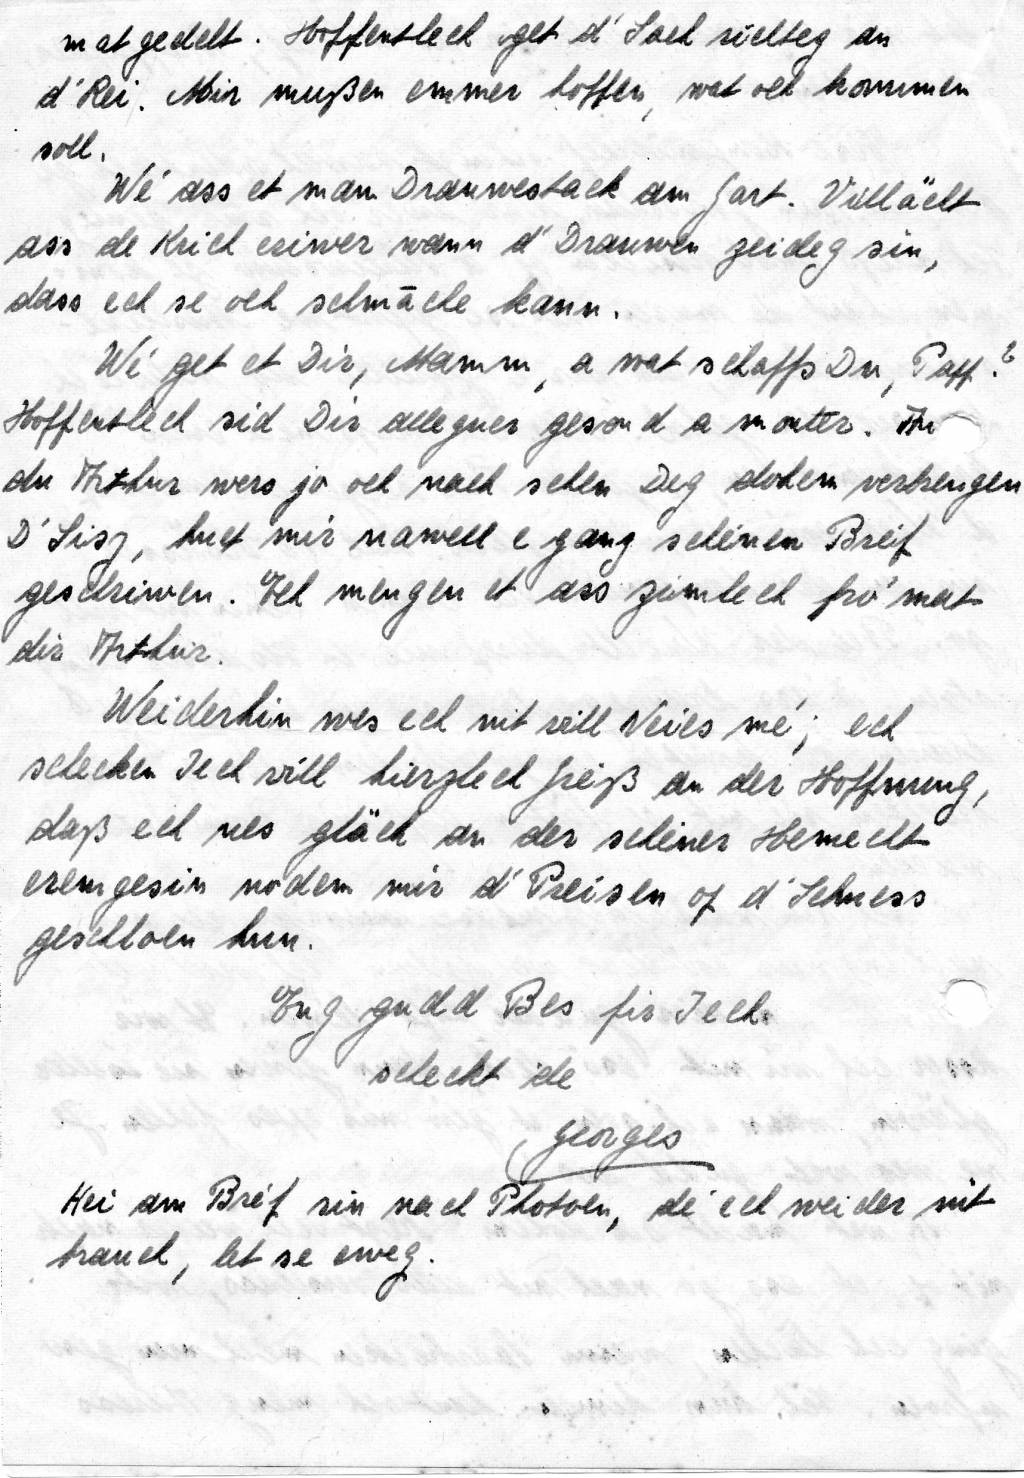 matgedelt. Hoffentlech get d'Sach richteg an
d'Rei. Mir mußen emmer hoffen, wat och kommen
soll.
Wé ass et mam Drauwestack am Gart. Villächt
ass de Krich eriwer wann d'Drauwen zeideg sin,
dass ech se och schmāche kann.
Wé get et Dir, Mamm, a wat schaffs Du, Papp?
Hoffentlech sid Dir alleguer gesond a monter. An
du Arthur wers jo och nach schen Deg dohem verbrengen
D'Sisy, huet mir nawell e ganz schéinen Bréif
geschriwen. Ech mengen et ass zimlech fro' mat
dir Arthur.
Weiderhin wes ech nit vill Neies mé; ech
schecken Iech vill hierzlech Greiß an der Hoffnung,
daß ech nes gläch an der schéiner Hemecht
eremgesin nodem mir d'Preisen of d'Schness
geschloen hun.
Eng gudd Bes fir Iech
scheckt de
Georges
Hei am Bréf sin nach Photoen, dé ech weider nit
brauch, let se eweg.